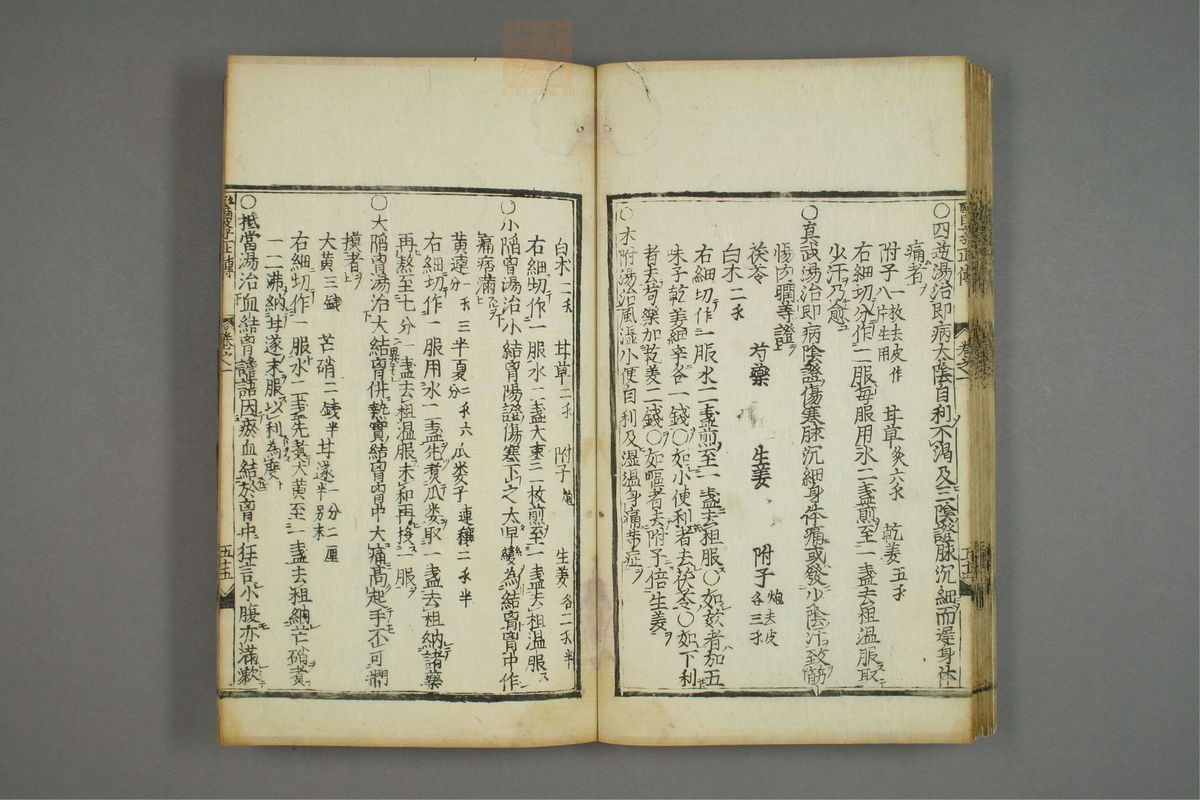 ○四逆湯治即病太陰自利不渴及三陰證脉沉細而遲身体
痛者
附子八片生用 一枚去皮作 甘草炙六禾 乾姜五禾
右細切分作二服毎服用水二盞煎至一盞去柤温服取
少汗乃愈
○真武湯治即病陰證傷寒脉沉細身体痛或發少陰汗致筋
惕肉瞤等證
茯苓 芍藥 生姜 附子炮去皮各三禾
白术二禾
右細切作一服水二盞煎至一盞去柤服○如欬者加五
味子乾姜細辛各一錢○如小便利者去茯苓○如下利
者去芍藥加乾姜二錢○如嘔者去附子倍生姜
○术附湯治風湿小便自利及湿温身痛等症
白术二禾 甘草二禾 附子炮 生姜各二禾半
右細切作一服水二盞大棗二枚煎至一盞去柤温服
○小陥胷湯治小結胷陽證傷寒下之太早變為結胷胷中作
痛痞滿
黄連一禾三分 半夏二禾六分 瓜蒌子連穰二禾半
右細切作一服用水二盞先煮瓜蒌取一盞去柤納諸藥
再熬至七分一盞去柤温服未和再投一服
○大陥胷湯治大結胷併熱實結胷胷中大痛高起手不可捫
摸者
大黄三錢 芒硝二錢半 甘遂一分二厘半別末
右細切作一服水二盞先煮大黄至一盞去柤納芒硝煮
一二沸納甘遂末服以利為度
○抵當湯治血結胷譫語因瘀血結於胷中狂言小腹亦滿漱